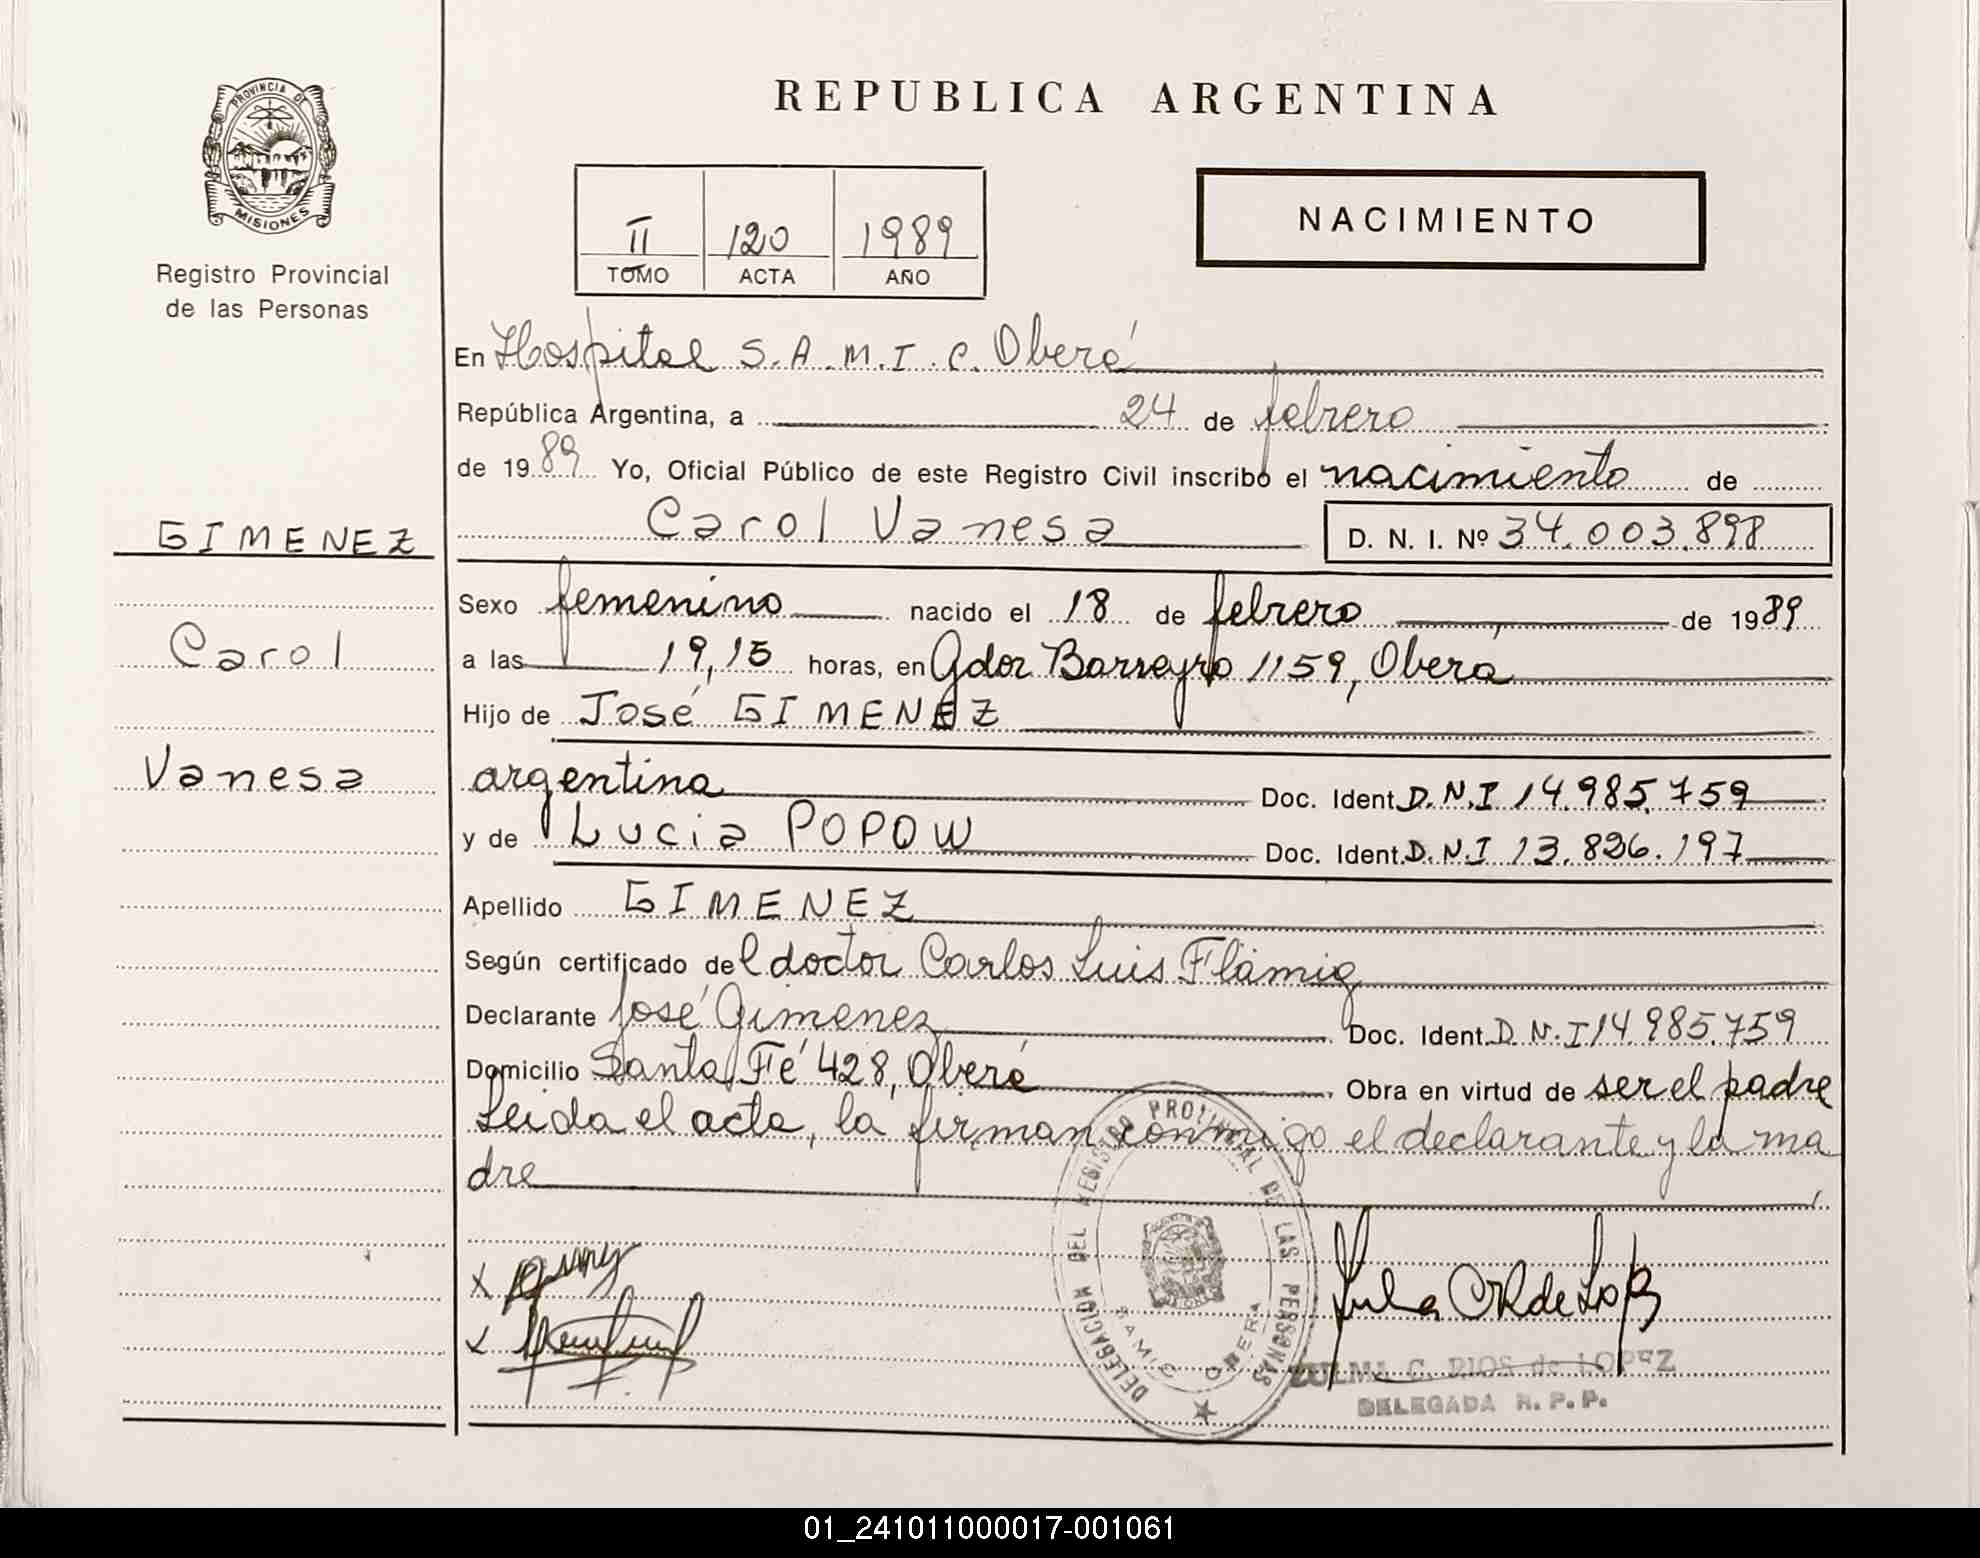 PROVINCIA DE
MISIONES
Registro Provincial
de las Personas
GIMENEZ
Carol
Vanesa
REPUBLICA ARGENTINA
II 120 1989
TOMO ACTA AÑO
NACIMIENTO
En Hospital S.A.M.I.C. Oberá
República Argentina, a 24 de febrero
de 1989 Yo, Oficial Público de este Registro Civil inscribo el nacimiento de
Carol Vanesa D. N. I. Nº 34.003.898
Sexo femenino nacido el 18 de febrero de 1989
a las 19,15 horas, en Gdor Barreyro 1159, Oberá
Hijo de José GIMENEZ
argentina Doc. Ident. D.N.I 14.985.759
y de Lucia POPOW Doc. Ident. D.N.I 13.836.197
Apellido GIMENEZ
Según certificado del doctor Carlos Luis Flämig
Declarante José Gimenez Doc. Ident. D.N.I 14.985.759
Domicilio Santa Fé 428, Oberá Obra en virtud de ser el padre
Leida el acta, la firman conmigo el declarante y la ma
dre
DELEGACION DEL REGISTRO PROVINCIAL DE LAS PERSONAS
SAMIC OBERA
ZULMA C. RIOS de LOPEZ
DELEGADA R. P. P.
01_241011000017-001061